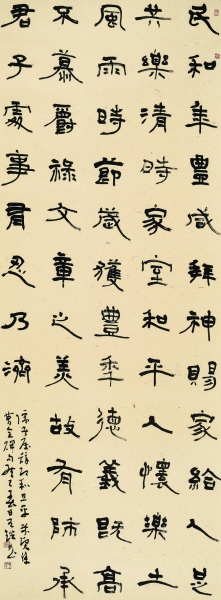 民和年豐咸拜神賜家給人足
共樂清時家室和平人懷樂土
風雨時節歲獲豐年德義既高
不慕爵祿文章之美故有師承
君子處事有忍乃濟
曹全碑